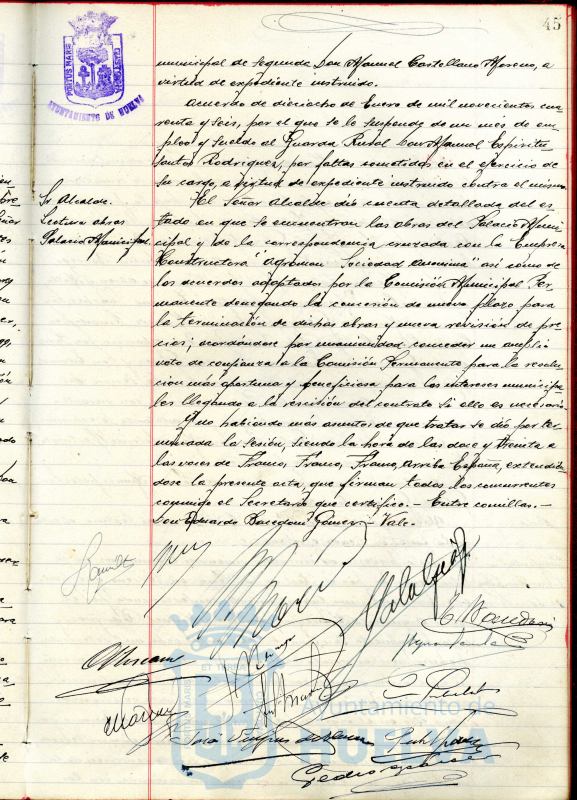 45
PORTUS MARIS
ET TERRÆ CUSTODIA
AYUNTAMIENTO DE HUELVA
municipal de segunda Don Manuel Castellano Moreno, a
virtud de expediente instruido.
Acuerdo de dieciocho de Enero de mil novecientos cua-
renta y seis, por el que se le suspende de un mes de em-
pleo y sueldo al Guarda Rural Don Manuel Espiritu
Santos Rodriguez, por faltas cometidas en el ejercicio de
su cargo, a virtud de expediente instruido contra el mismo.
Sr Alcalde.
Lectura obras
Palacio Municipal.
El Señor Alcalde dió cuenta detallada del es-
tado en que se encuentran las obras del Palacio Muni-
cipal y de la correspondencia cruzada con la Empresa
Constructora "Agroman Sociedad Anonima" asi como de
los acuerdos adoptados por la Comisión Municipal Per-
manente denegando la concesión de nuevo plazo para
la terminación de dichas obras y nueva revisión de pre-
cios; acordándose por unanimidad conceder un amplio
voto de confianza a la Comisión Permanente para la resolu-
ción más oportuna y beneficiosa para los intereses municipa-
les llegando a la rescisión del contrato si ello es necesario.
Y no habiendo más asuntos de que tratar se dió por ter-
minada la sesión, siendo la hora de las doce y treinta a
las voces de Franco, Franco, Franco, Arriba España, extendién-
dose la presente acta, que firman todos los concurrentes
conmigo el Secretario que certifico. - Entre comillas. -
Don Eduardo Gómez - Vale. -
Ayuntamiento de
HUELVA